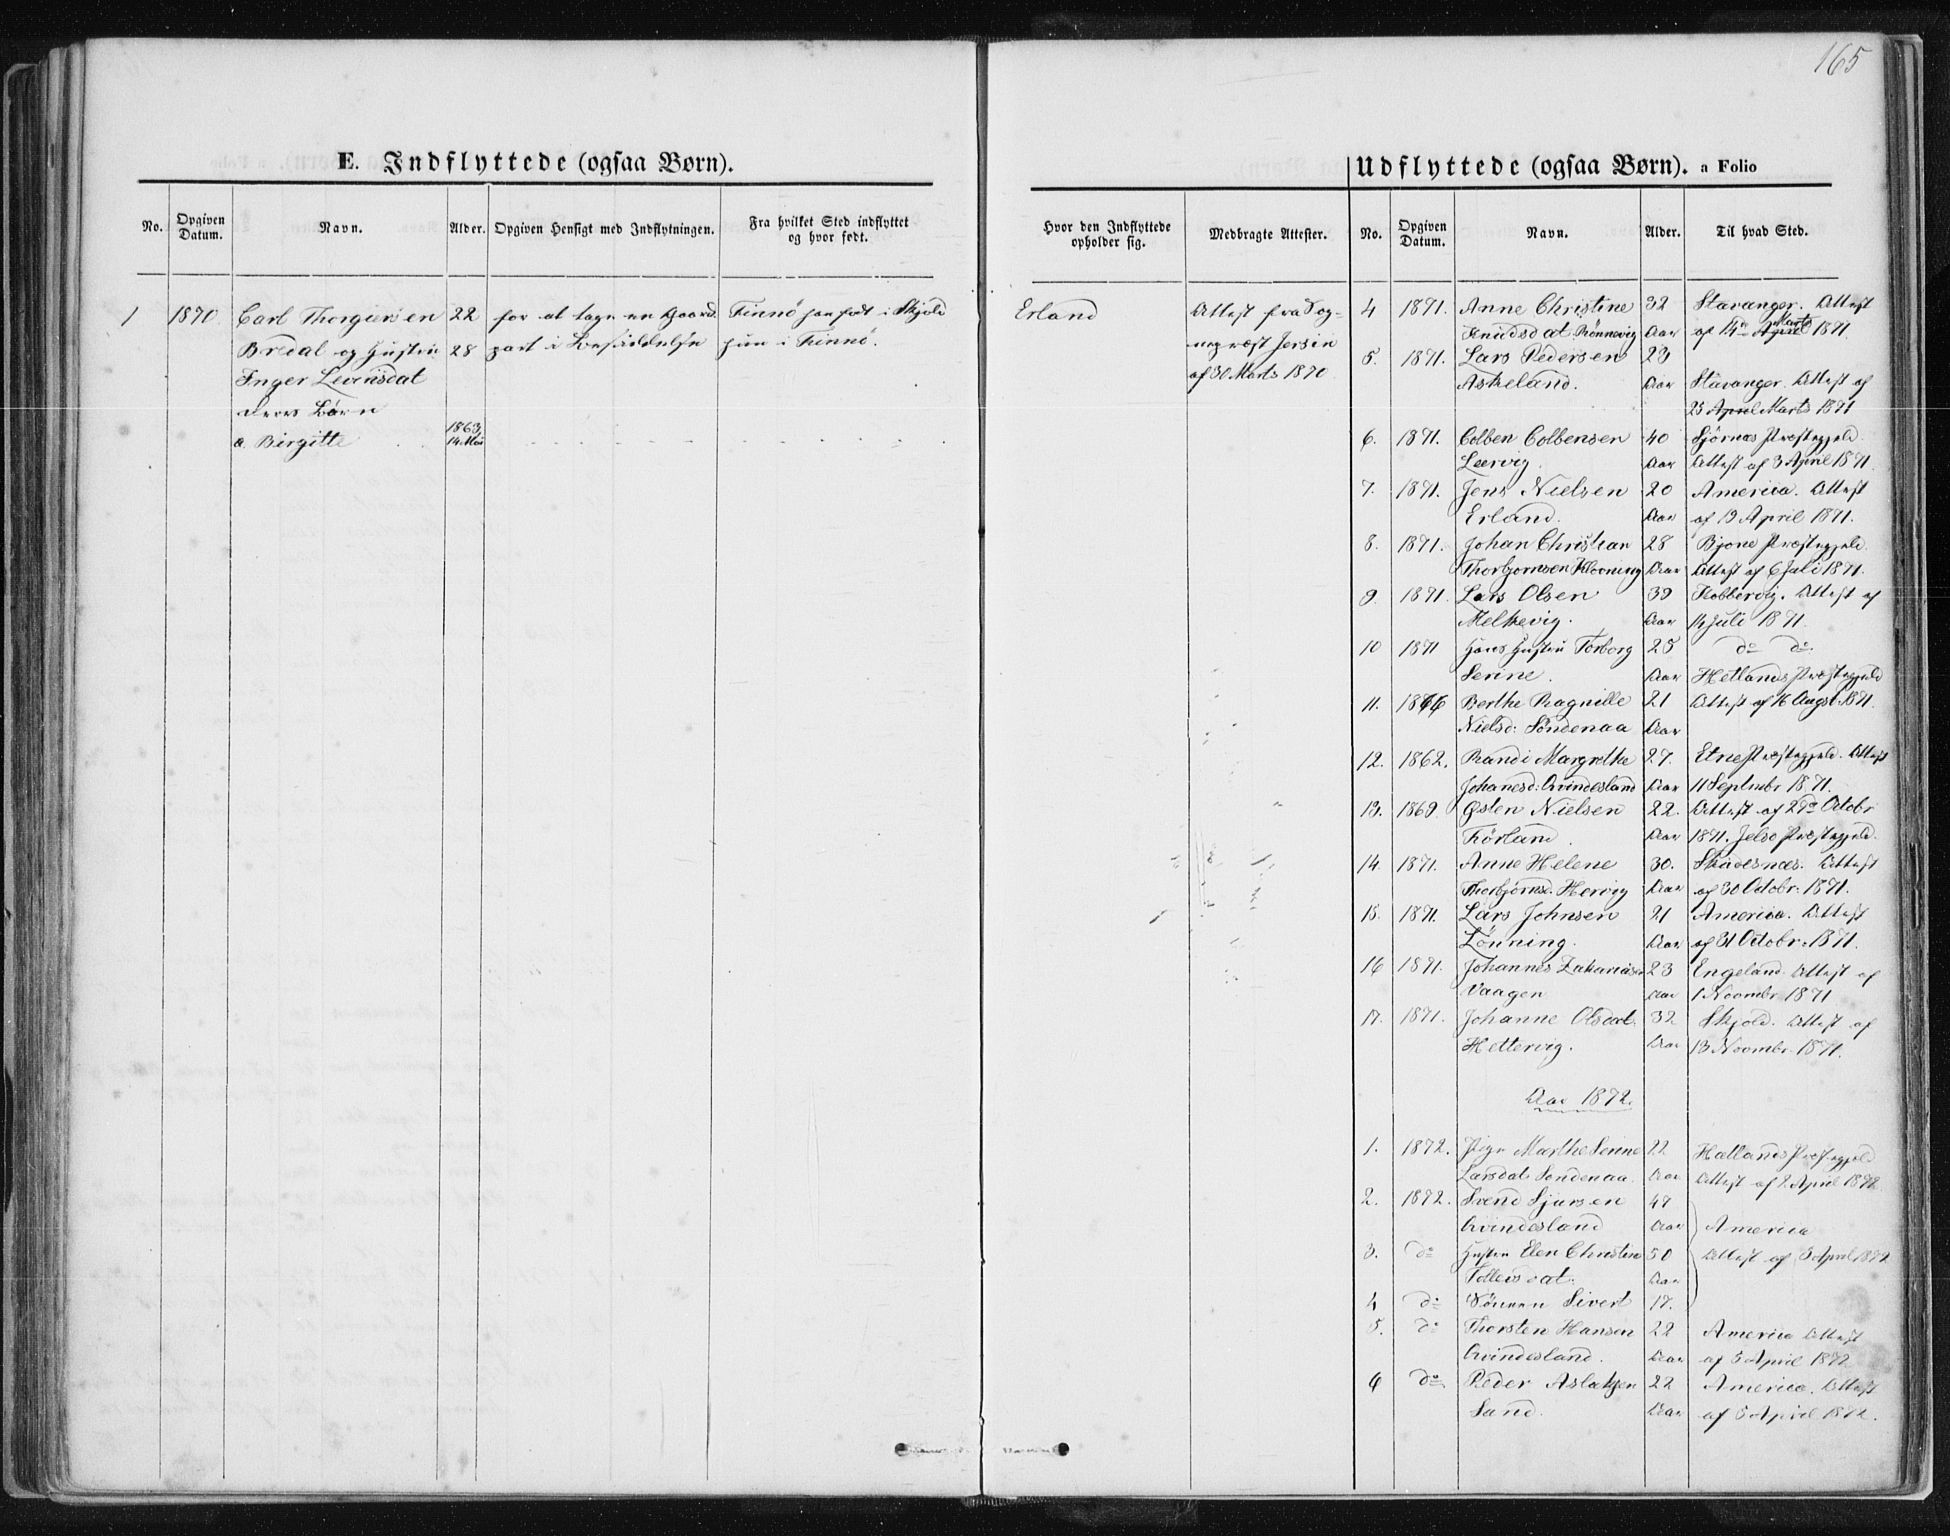 165
E. Indflyttede (ogsaa Børn).
No.
Opgiven Datum.
Navn.
Alder.
Opgiven Hensigt med Indflytningen.
Fra hvilket Sted indflyttet og hvor født.
1 1870 Carl Thorgiersen 22 for at tage en Gaard- Finnö han født i Skjold
Bredal og Hustru 28 part i Besiddelse hun i Finnö.
Inger Levinsdat
deres Børn
1863
a. Birgitte 14 Mai
Hvor den Indflyttede opholder sig.
Medbragte Attester.
Erland Attest fra Sog-
nepræst Jersin
af 30 Marts 1870
Udflyttede (ogsaa Børn). a Folio
No.
Opgiven Datum.
Navn.
Alder.
Til hvad Sted.
4 1871. Anne Christine 32 Stavanger. Attest
Knudsdat Rönnevig Aar af 14de April Marts 1871
5. 1871. Lars Pedersen 23
Askeland. Aar Stavanger. Attest af
25 April Marts 1871
6. 1871. Colben Colbensen 40 Sjörnæs Præstegjeld.
Leervig. Aar Attest af 3 April 1871
7. 1871. Jens Nielsen 20 America. Attest
Erland. Aar af 19 April 1871.
8. 1871. Johan Christian 28 Præstegjeld.
Thorbjørnsen Klovning Aar Attest af 6 Juli 1871.
9. 1871. Lars Olsen 39 Kobbervig. Attest af
Melkevig. Aar 14 Juli 1871.
10 1871 Hans Hustru Torborg 25 do do
Serine. Aar Hetlands Præstegjeld
11. 1866 Berthe Ragnille 21 Attest af 16 Augst: 1871.
Nielsd: Søndenaa Aar
12. 1862. Randi Margrethe 27. Etne Præstegjeld. Attest
Johanesd: Qvindesland Aar 11 Septmbr 1871.
13. 1869 Østen Nielsen 22. Attest af 29de Octobr
Förland. Aar 1871. Jelse Præstegjeld.
14. 1871. Anne Helene 30. Skudesnæs. Attest
Thorbjørnsd. Hervig Aar af 30 Octobr. 1871.
15. 1871. Lars Johnsen 21 America. Attest
Lönning. Aar af 31 Octobr. 1871.
16 1871. Johannes Zakariasen 23 Engeland. Attest af
Vaagen Aar 1 Novmbr 1871
17. 1871. Johanne Olsdat. 32 Skjold. Attest af
Hettervig. Aar 13 Novmbr. 1871.
Aar 1872.
1. 1872. Pige Marthe Serine 22 Hetlands Præstegjeld
Larsdat Søndenaa. Aar Attest af 2 April 1872.
2. 1872. Svend Sjursen 47
Qvindesland Aar America
3. do Hustru Elen Christine 50 Attest af 3 April 1872
Tollevsdat. Aar
4 do Sönnen Sivert 17.
5. do Thorsten Hansen 22 America Attest
Qvindesland. Aar af 5 April 1872
6 do Peder Aslaksen 22 America. Attest
Sand. Aar af 5 April 1872.